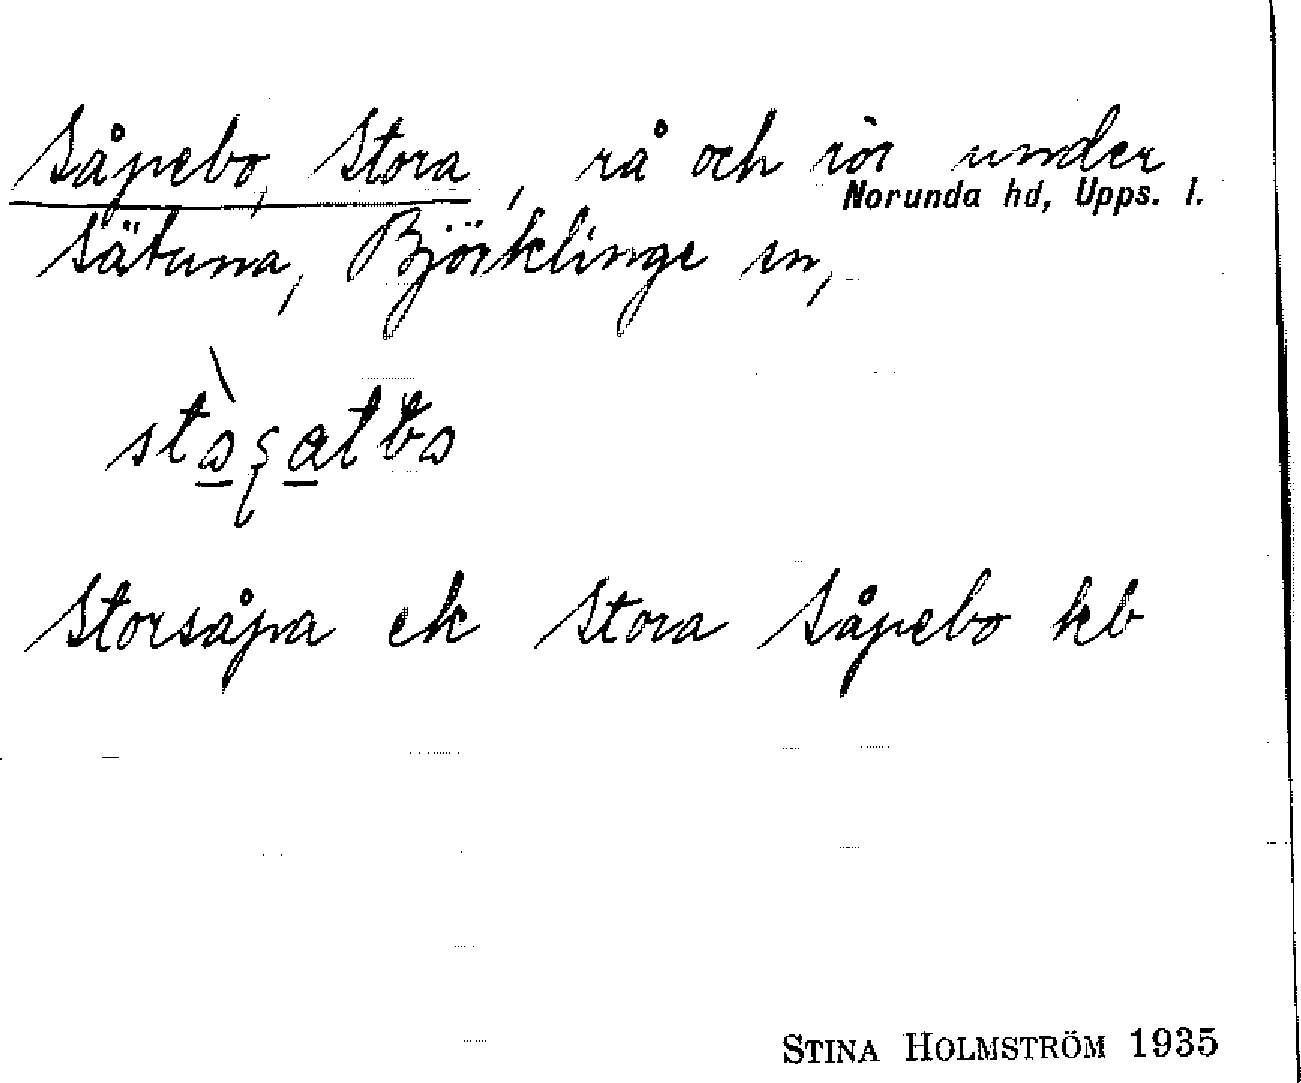 Såpebo, Stora, rå och rör under
Norunda hd, Upps. l.
Sätuna, Björklinge sn,
Storsåpa ek Stora Såpebo kb
STINA HOLMSTRÖM 1935